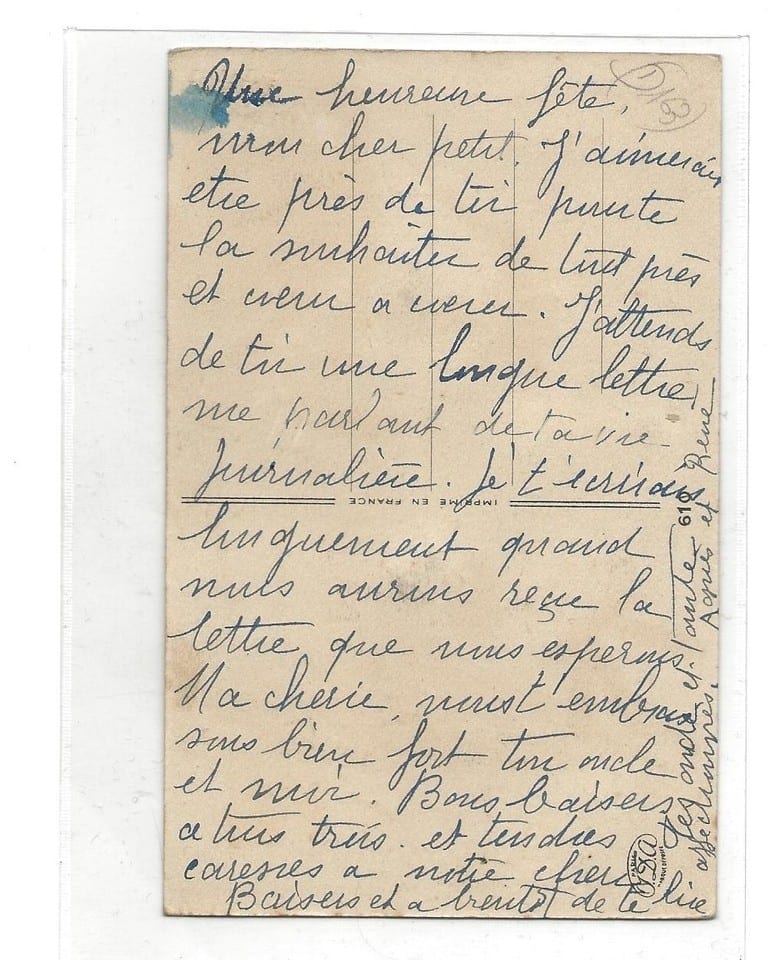 Une heureuse fête,
mon cher petit. J'aimerais
etre près de toi pour te
la souhaiter de tout près
et coeur a coeur. J'attends
de toi une longue lettre
me parlant de ta vie
journalière. Je t'écrirais
IMPRIMÉ EN FRANCE
longuement quand
nous aurons reçue la
lettre que nous esperons.
Ma cherie, nous t'embras
sons bien fort ton oncle
et moi. Bons baisers
a tous trois. et tendres
caresses a notre cher
Baisers et a bientôt de te lire
Tes oncle et Tante
affectionnés. Agnès et René
616
PARIS